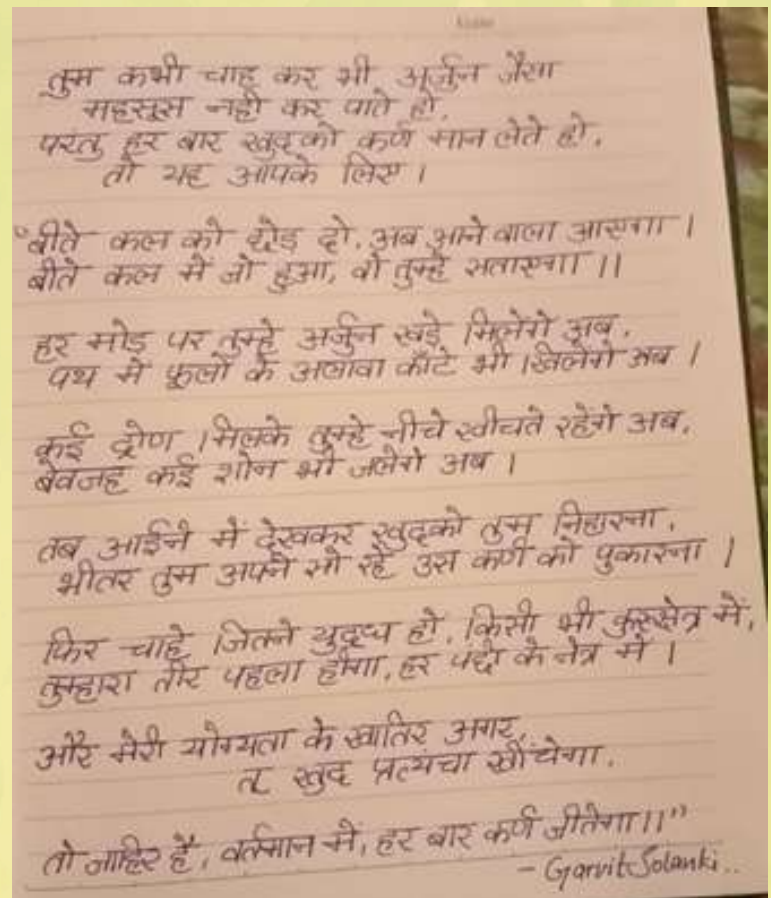 तुम कभी चाह कर भी अर्जुन जैसा
महसूस नही कर पाते हो,
परंतु हर बार खुदको कर्ण मान लेते हो,
तो यह आपके लिए ।
"बीते कल को छोड दो, अब आने वाला आएगा ।
बीते कल में जो हुआ, वो तुम्हे सताएगा ।।
हर मोड पर तुम्हे अर्जुन खडे मिलेगे अब,
पथ मे फूलों के अलावा काँटे भी खिलेगे अब ।
कई द्रोण मिलके तुम्हे नीचे खीचते रहेगे अब,
बेवजह कई भी जलेगे अब ।
तब आईने में देखकर खुदको तुम निहारना,
भीतर तुम अपने सो रहे उस कर्ण को पुकारना ।
फिर चाहे जितने युद्ध हो, किसी भी कुरुक्षेत्र में,
तुम्हारा तीर पहला होगा, हर पक्षी के नेत्र में ।
और मेरी योग्यता के खातिर अगर,
तू खुद प्रत्यंचा खींचेगा,
तो जाहिर है, वर्तमान में, हर बार कर्ण जीतेगा।।"
- Garvit Solanki..